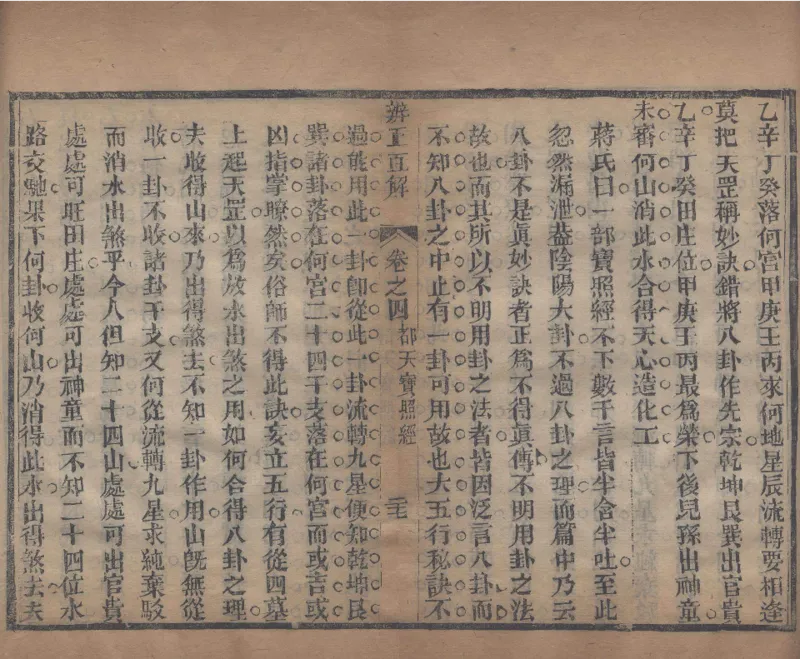 乙辛丁癸落何宮甲庚壬丙來何地星辰流轉要相逢
莫把天罡稱妙訣錯將八卦作先宗乾坤艮巽出官貴
乙辛丁癸田庄位甲庚壬丙最爲榮下後兒孫出神童
未審何山消此水合得天心造化工
蔣氏曰一部寶照經不下數千言皆半含半吐至此
忽然漏泄蓋陰陽大卦不過八卦之理而篇中乃云
八卦不是眞妙訣者正爲不得眞傳不明用卦之法
故也而其所以不明用卦之法者皆因泛言八卦而
不知八卦之中止有一卦可用故也大五行秘訣不
辨正直解 卷之四 都天寶照經 二七
過能用此一卦卽從此一卦流轉九星便知乾坤艮
巽諸卦落在何宮二十四干支落在何宮而或吉或
凶指掌瞭然矣俗師不得此訣妄立五行有從四墓
上起天罡以爲放水出煞之用如何合得八卦之理
夫收得山來乃出得煞去不知一卦作用山旣無從
收一卦不收諸卦干支又何從流轉九星求純棄駁
而消水出煞乎今人但知二十四山處處可出官貴
處處可旺田庄處處可出神童而不知二十四位水
路交馳果下何卦收何山乃消得此水出得煞去夫